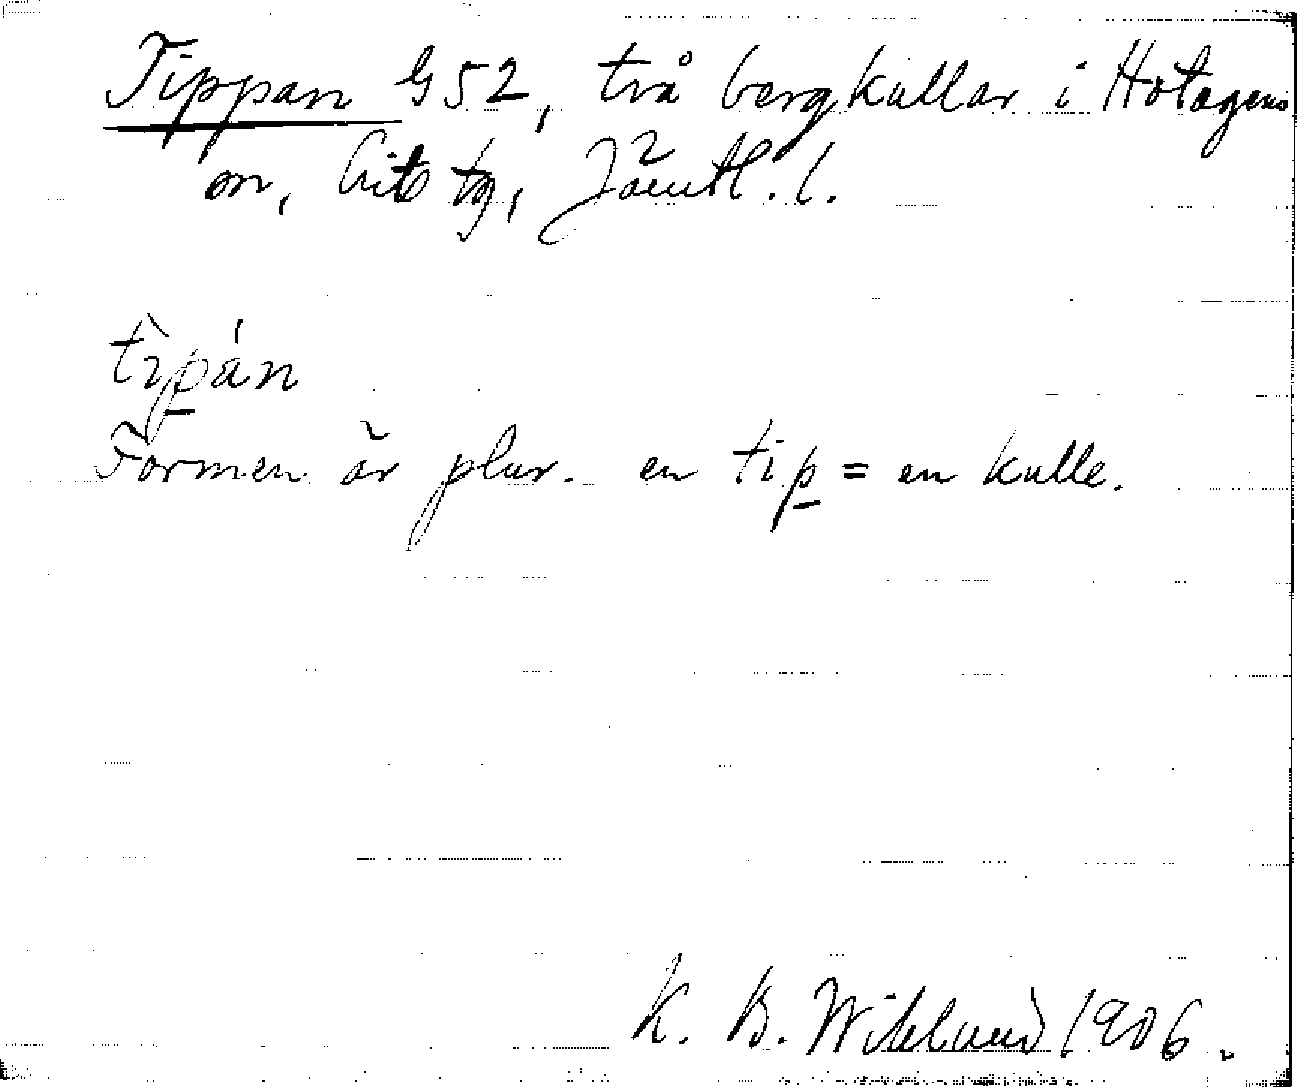 Tippan G52, två bergkullar i Hotagens
sn, Lits tg, Jämtl. l.
tìpán
Formen är plur. en tip = en kulle.
K. B. Wiklund 1906.